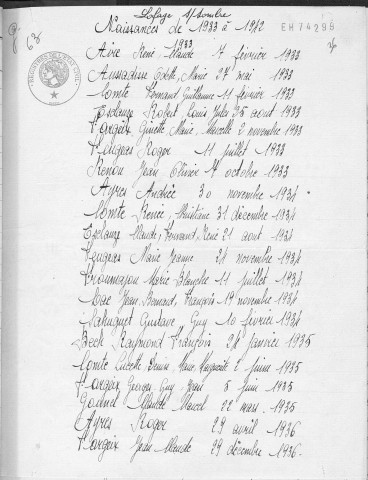 Lafage s/ Sombre
Naissances de 1933 à 1942
EH74296
68
1933
Aire René, Claude 7 février 1933
Aussadesse Odette, Marie 27 mai 1933
Comte Fernand Guillaume 11 février 1933
Esclauze Robert Louis Jules 25 août 1933
Farges Ginette Marie, Marcelle 2 novembre 1933
Farges Roger 11 juillet 1933
Renou Jean Olivier 7 octobre 1933
Ayres Andrée 30 novembre 1934
Comte Renée, Christiane 31 décembre 1934
Esclauze Claude, Fernand, René 21 août 1934
Marie Jeanne 24 novembre 1934
Marie Blanche 11 juillet 1934
Mac Jean, Bernard, François 19 novembre 1934
Gustave, Guy 10 février 1934
Bech Raymond François 24 janvier 1935
Comte Lucette Denise Marie Marguerite 2 juin 1935
Georges, Guy Jean 5 juin 1935
Claude Marcel 22 mars 1935
Ayres Roger 29 avril 1936
Jean Claude 29 décembre 1936